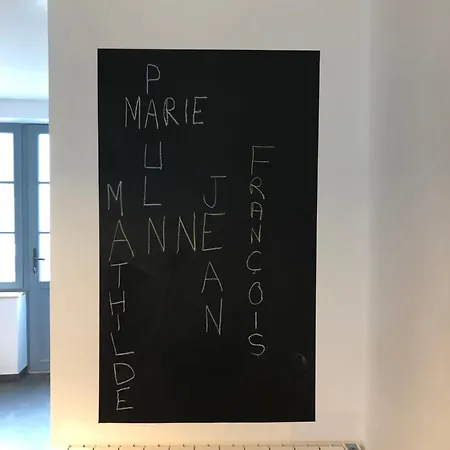 PAUL
MARIE
MATHILDE
ANNE
JEAN
FRANÇOIS